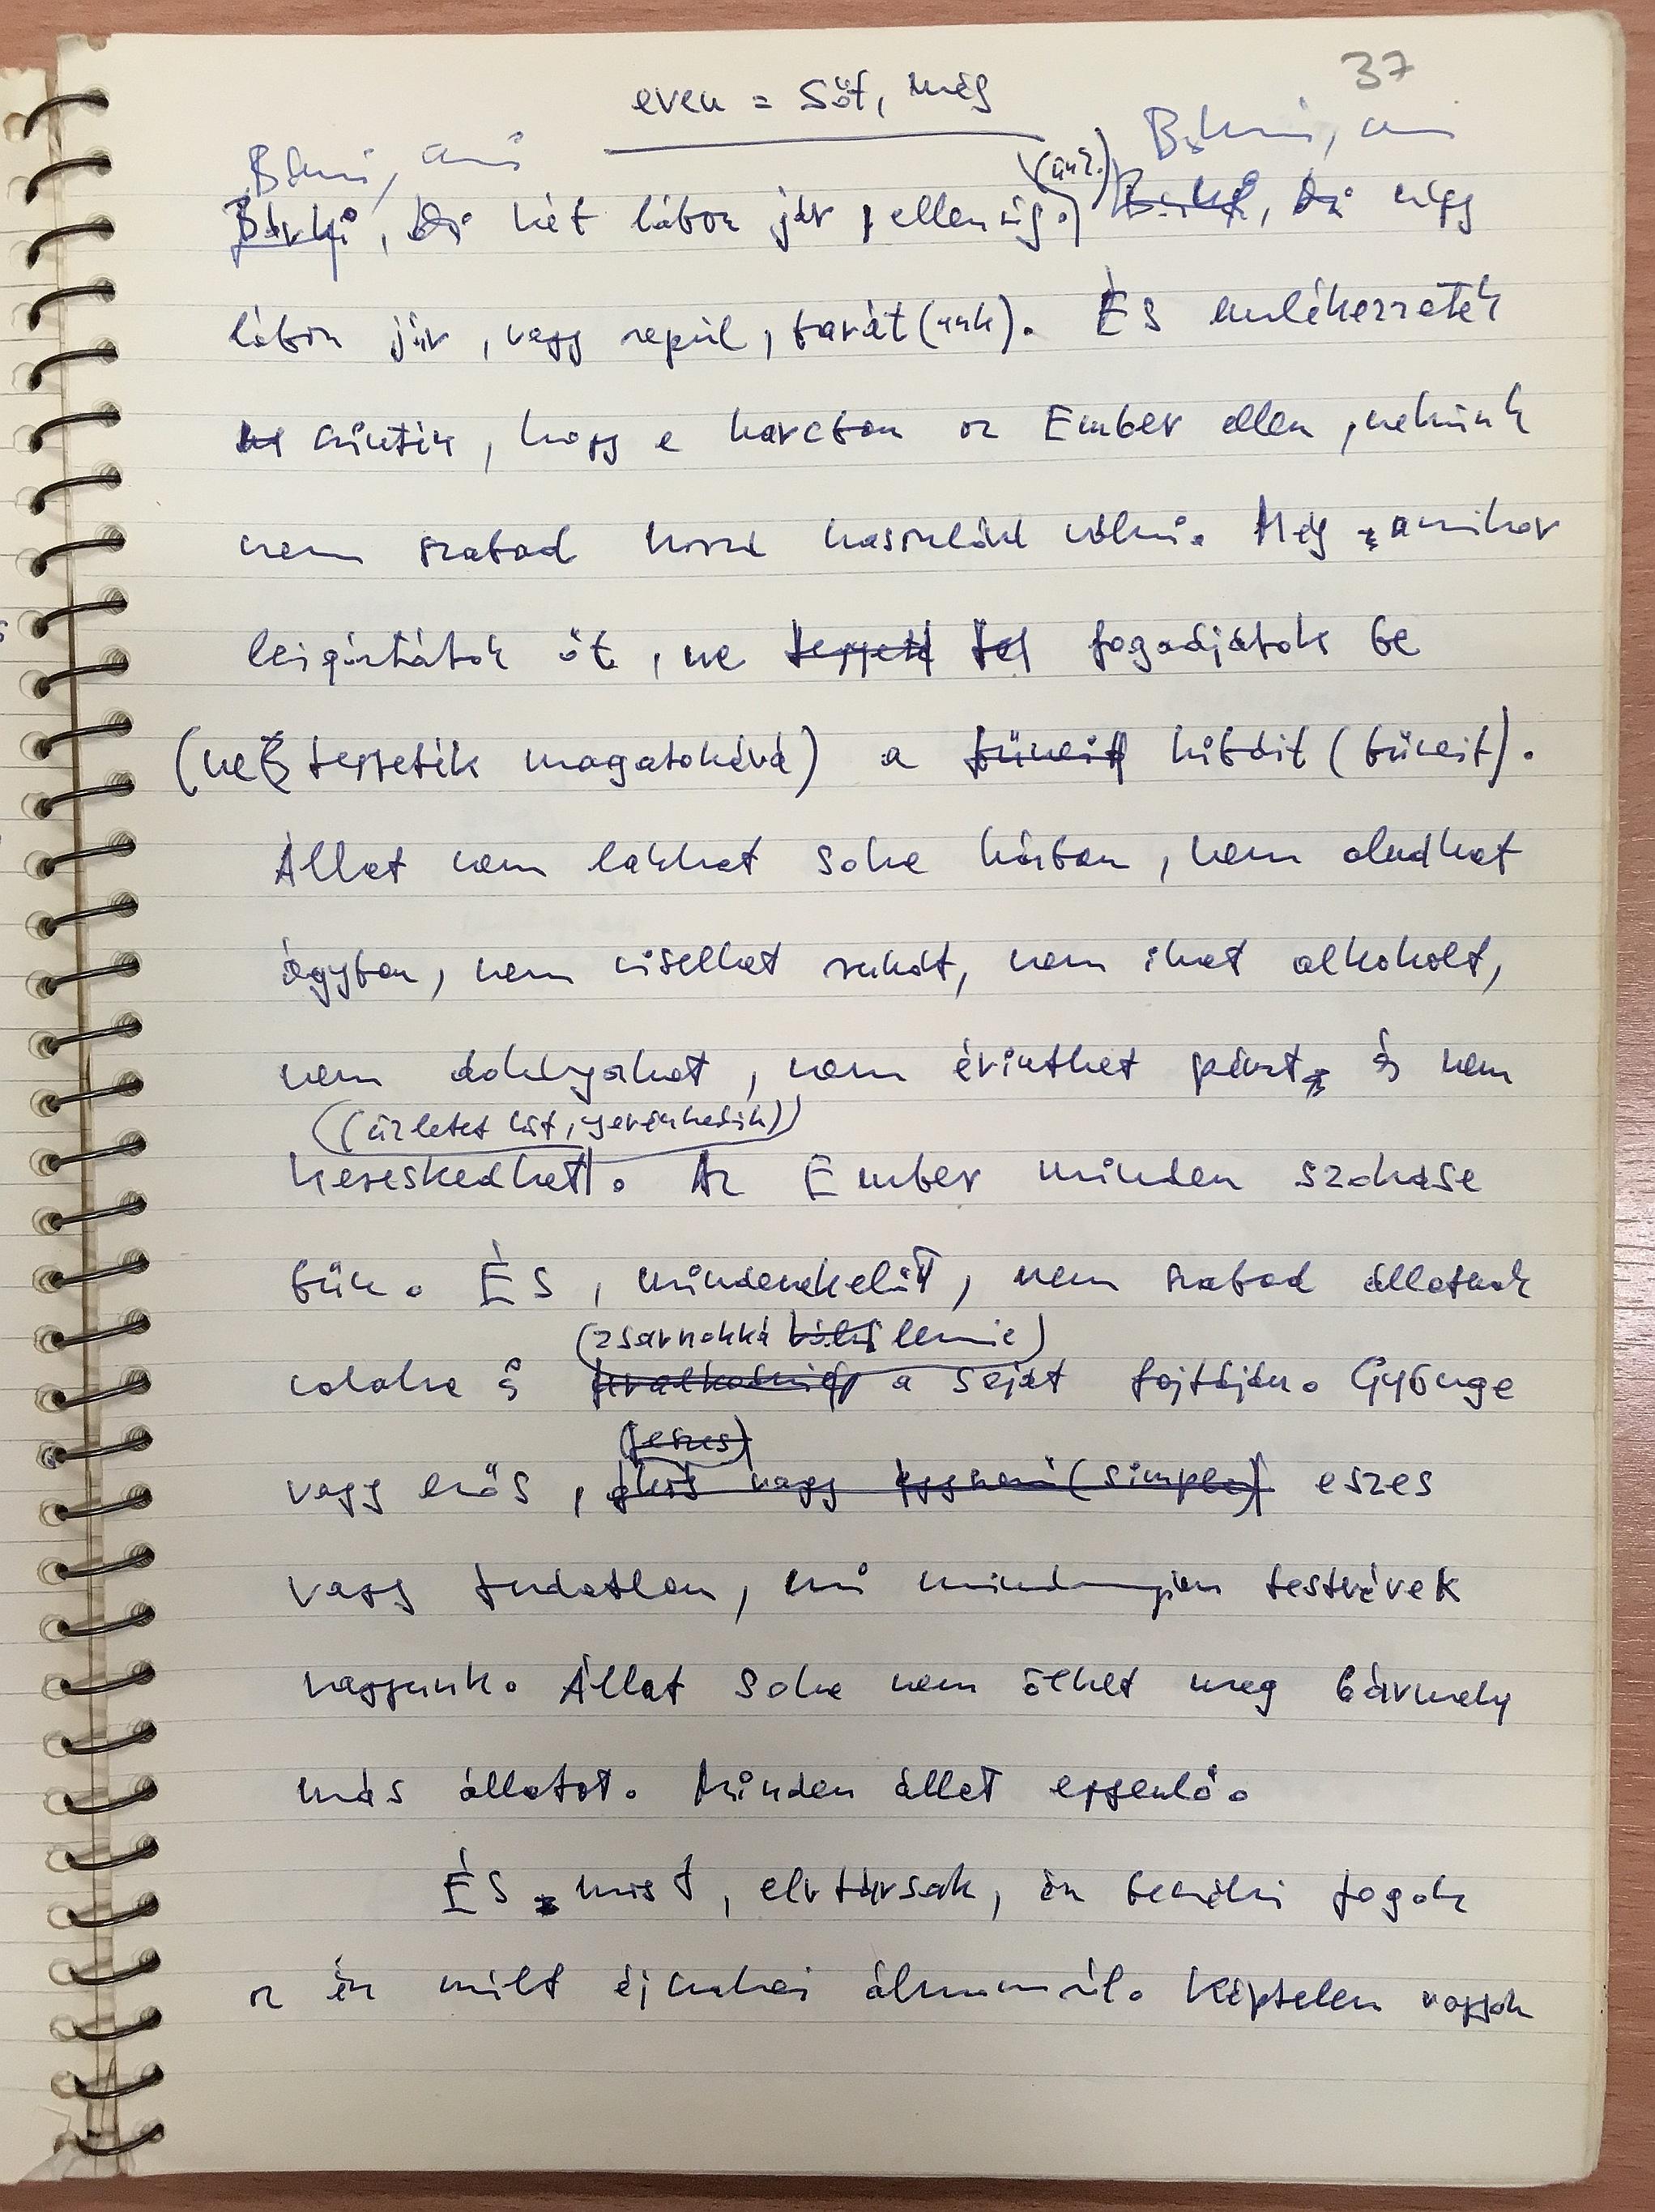 37
even = sőt, még
Bármi, ami
Bármi, ami
(ünk.)
Bárki, ki két lábon jár, ellenség. Bárki, ki négy
lábon jár, vagy repül, barát(unk). És emlékezzetek
arra szintén, hogy a harcban az Ember ellen, nekünk
nem szabad hozzá hasonlóvá válni. Még amikor
leigáztátok őt, ne fogadjátok be
(ne tegyétek magatokévá) a bűneit hibáit (bűneit).
Állat nem lakhat soha házban, nem aludhat
ágyban, nem viselhet ruhát, nem ihat alkoholt,
nem dohányozhat, nem érinthet pénzt, és nem
((üzletet köt, kereskedik))
kereskedhet. Az Ember minden szokása
bűn. És, mindenekelőtt, nem szabad állatnak
(zsarnokká válni lennie)
uralkodnia a saját fajtáján. Gyönge
(eszes)
vagy erős, okos vagy együgyű (simple) eszes
vagy tudatlan, mi mindnyájan testvérek
vagyunk. Állat soha nem ölhet meg bármely
más állatot. Minden állat egyenlő.
És most, elvtársak, én beszélni fogok
az én múlt éjszakai álmomról. Képtelen vagyok